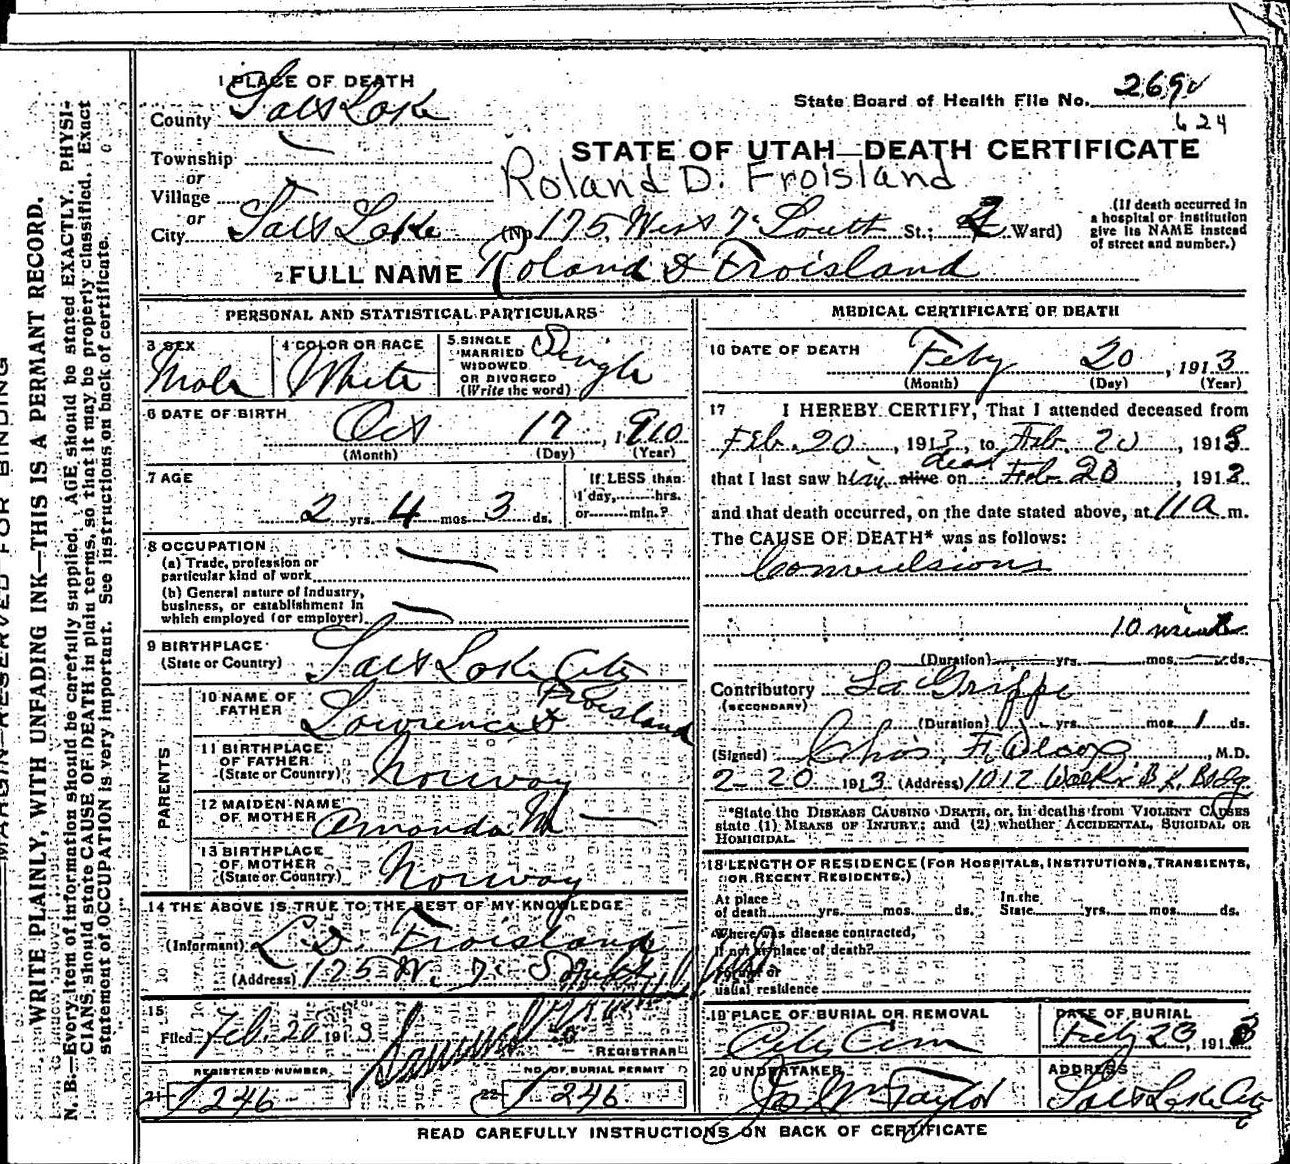 1 PLACE OF DEATH
County Salt Lake
State Board of Health File No. 269
624
Township
or
Village
or
City Salt Lake
STATE OF UTAH—DEATH CERTIFICATE
Roland D. Froisland
(No. 175 West 7 South St.; 2 Ward)
(If death occurred in
a hospital or institution
give its NAME instead
of street and number.)
2 FULL NAME Roland D Froisland
PERSONAL AND STATISTICAL PARTICULARS
3 SEX
Male
4 COLOR OR RACE
White
5. SINGLE
MARRIED
WIDOWED
OR DIVORCED
(Write the word)
Single
6 DATE OF BIRTH
Oct 17, 1910
(Month) (Day) (Year)
7 AGE
2 yrs. 4 mos. 3 ds.
If LESS than
1 day, hrs.
or min.?
8 OCCUPATION
(a) Trade, profession or
particular kind of work
(b) General nature of Industry,
business, or establishment in
which employed (or employer)
9 BIRTHPLACE
(State or Country) Salt Lake City
PARENTS
10 NAME OF
FATHER Lawrence D Froisland
11 BIRTHPLACE
OF FATHER
(State or Country) Norway
12 MAIDEN NAME
OF MOTHER Amanda M
13 BIRTHPLACE
OF MOTHER
(State or Country) Norway
14 THE ABOVE IS TRUE TO THE BEST OF MY KNOWLEDGE
(Informant) L D Froisland
(Address) 175 W. 7 South
15
Filed Feb. 20 1913
REGISTRAR
REGISTERED NUMBER
21 246
NO. OF BURIAL PERMIT
22 246
MEDICAL CERTIFICATE OF DEATH
16 DATE OF DEATH
Feby 20, 1913
(Month) (Day) (Year)
17 I HEREBY CERTIFY, That I attended deceased from
Feb. 20, 1913, to Feb. 20, 1913
that I last saw him alive dead on Feb 20, 1913.
and that death occurred, on the date stated above, at 11 a m.
The CAUSE OF DEATH* was as follows:
Convulsions
10 minutes
(Duration) yrs. mos. ds.
Contributory La Grippe
(SECONDARY)
(Duration) yrs. mos. 1 ds.
(Signed) Chas. F. Wilcox M.D.
2-20 1913 (Address) 1012 Walker B.K. Bldg
*State the DISEASE CAUSING DEATH, or, in deaths from VIOLENT CAUSES
state (1) MEANS OF INJURY; and (2) whether ACCIDENTAL, SUICIDAL OR
HOMICIDAL.
18 LENGTH OF RESIDENCE (FOR HOSPITALS, INSTITUTIONS, TRANSIENTS,
OR RECENT RESIDENTS.)
At place
of death yrs. mos. ds.
In the
State yrs. mos. ds.
Where was disease contracted,
If not at place of death?
Former or
usual residence
19 PLACE OF BURIAL OR REMOVAL
City Cem
DATE OF BURIAL
Feby 23, 1913
20 UNDERTAKER
Jos Wm Taylor
ADDRESS
Salt Lake City
READ CAREFULLY INSTRUCTIONS ON BACK OF CERTIFICATE
MARGIN RESERVED FOR BINDING
WRITE PLAINLY, WITH UNFADING INK—THIS IS A PERMANT RECORD.
N. B.—Every item of information should be carefully supplied. AGE should be stated EXACTLY. PHYSI-
CIANS should state CAUSE OF DEATH in plain terms, so that it may be properly classified. Exact
statement of OCCUPATION is very important. See instructions on back of certificate.